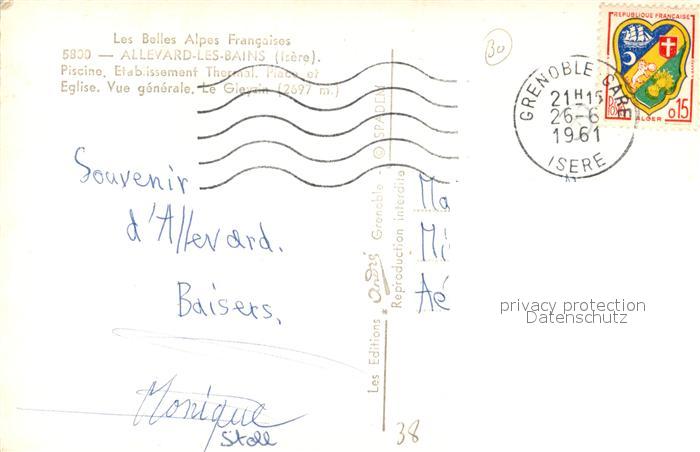 Les Belles Alpes Françaises
5800 — ALLEVARD-LES-BAINS (Isère).
Piscine, Etablissement Thermal. Place et
Eglise. Vue générale. Le Gleyzin (2697 m.)
Souvenir
d'Allevard.
Baisers.
Monique
Stoll
Les Editions André Grenoble - © SPADEM
Reproduction interdite
80
REPUBLIQUE FRANÇAISE
POSTES
ALGER
0,15
GRENOBLE GARE
21H15
26-6
1961
ISERE
Ma
Mi
Aé
privacy protection
Datenschutz
38